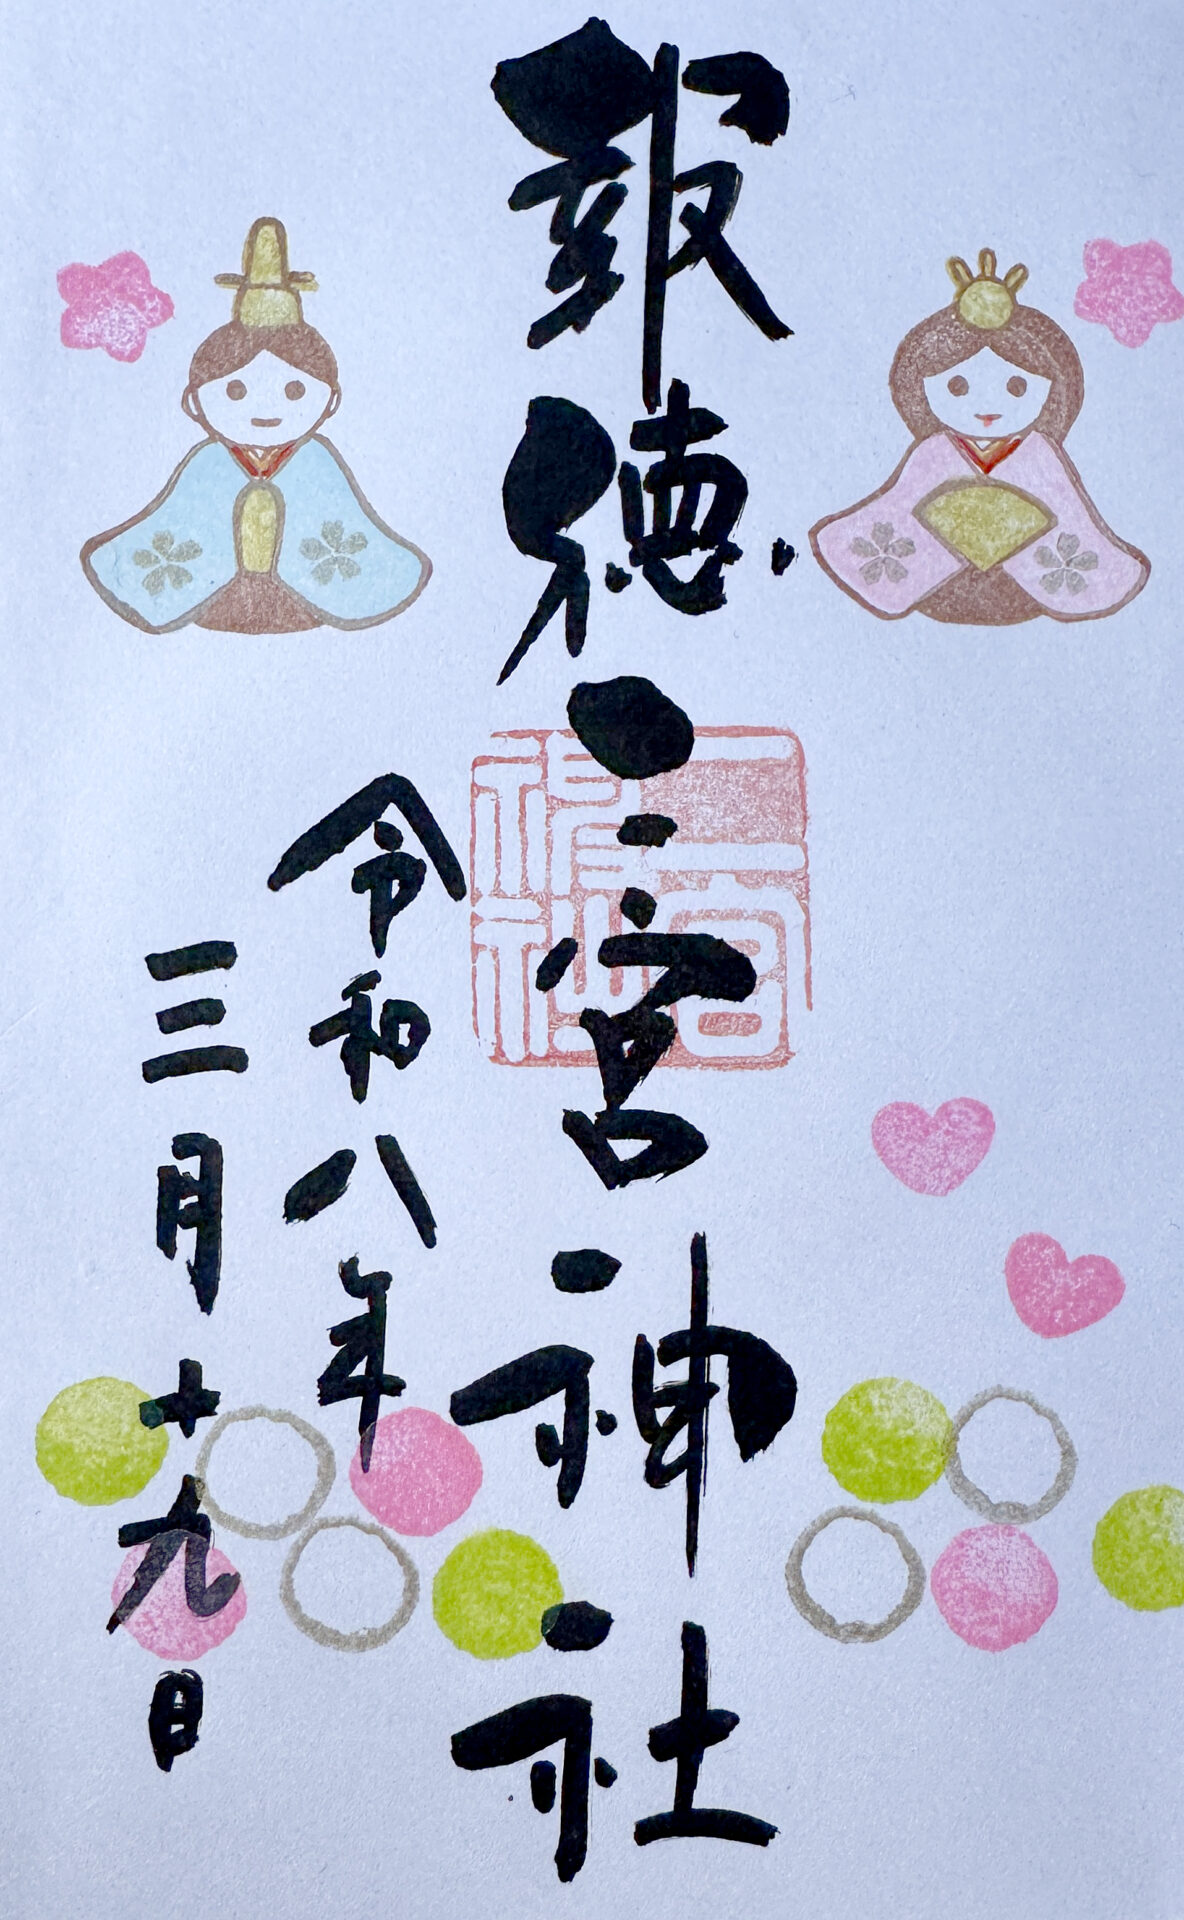 報徳二宮神社
二宮
神社
令和八年
三月十九日